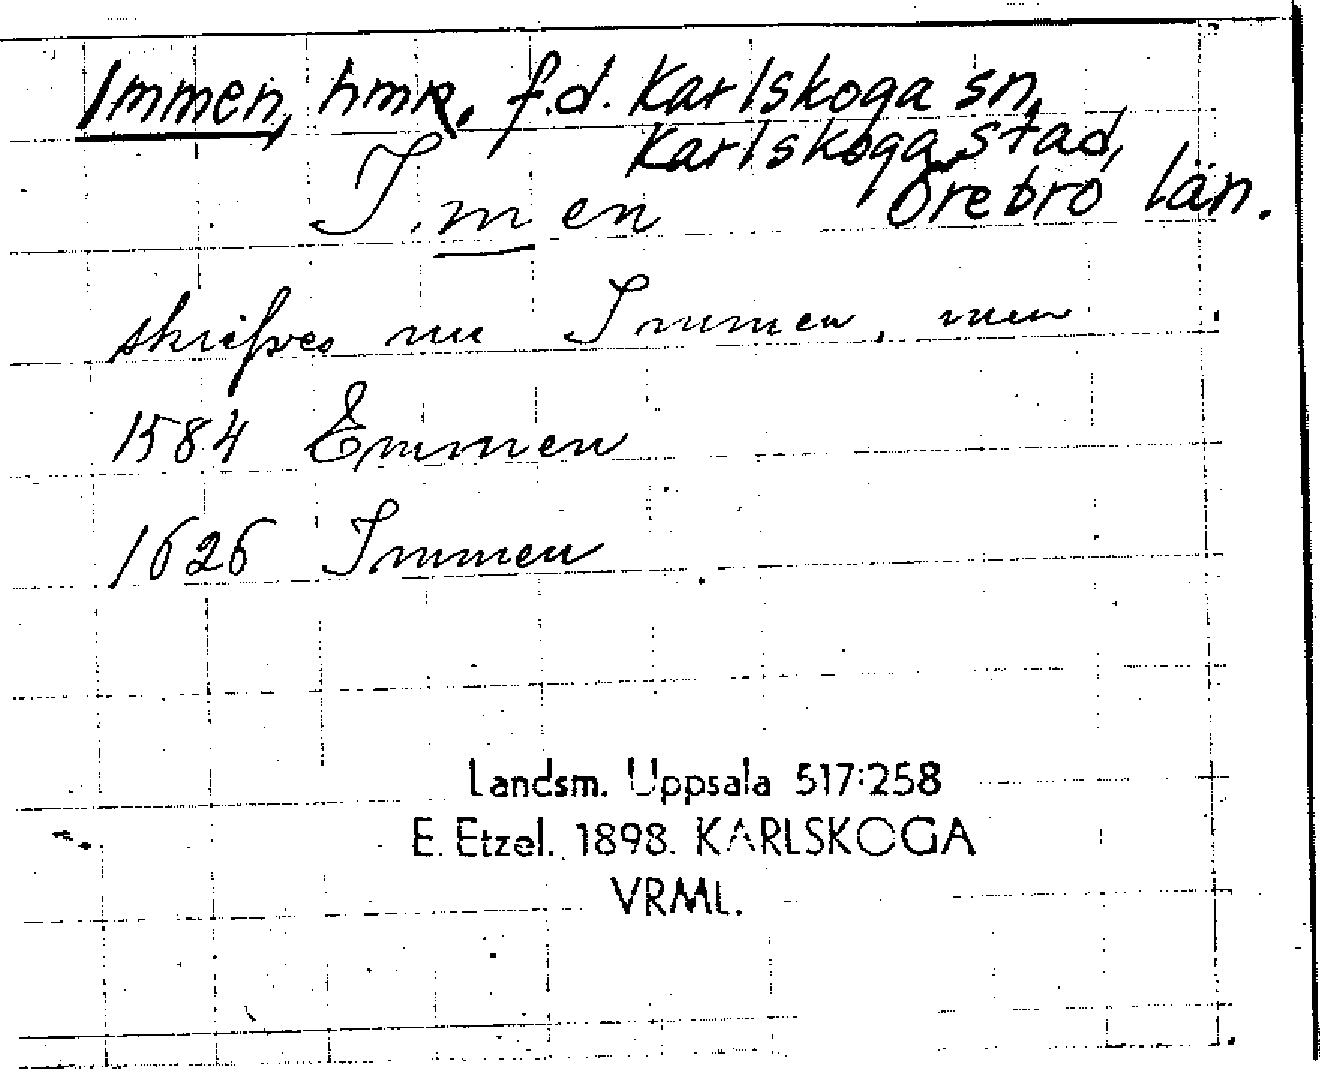 Immen, hmn. f.d. Karlskoga sn,
Karlskoga stad,
Örebro län.
I.men
skrifves nu Immen, men
1584 Emmen
1626 Immen
Landsm. Uppsala 517:258
E. Etzel. 1898. KARLSKOGA
VRML.